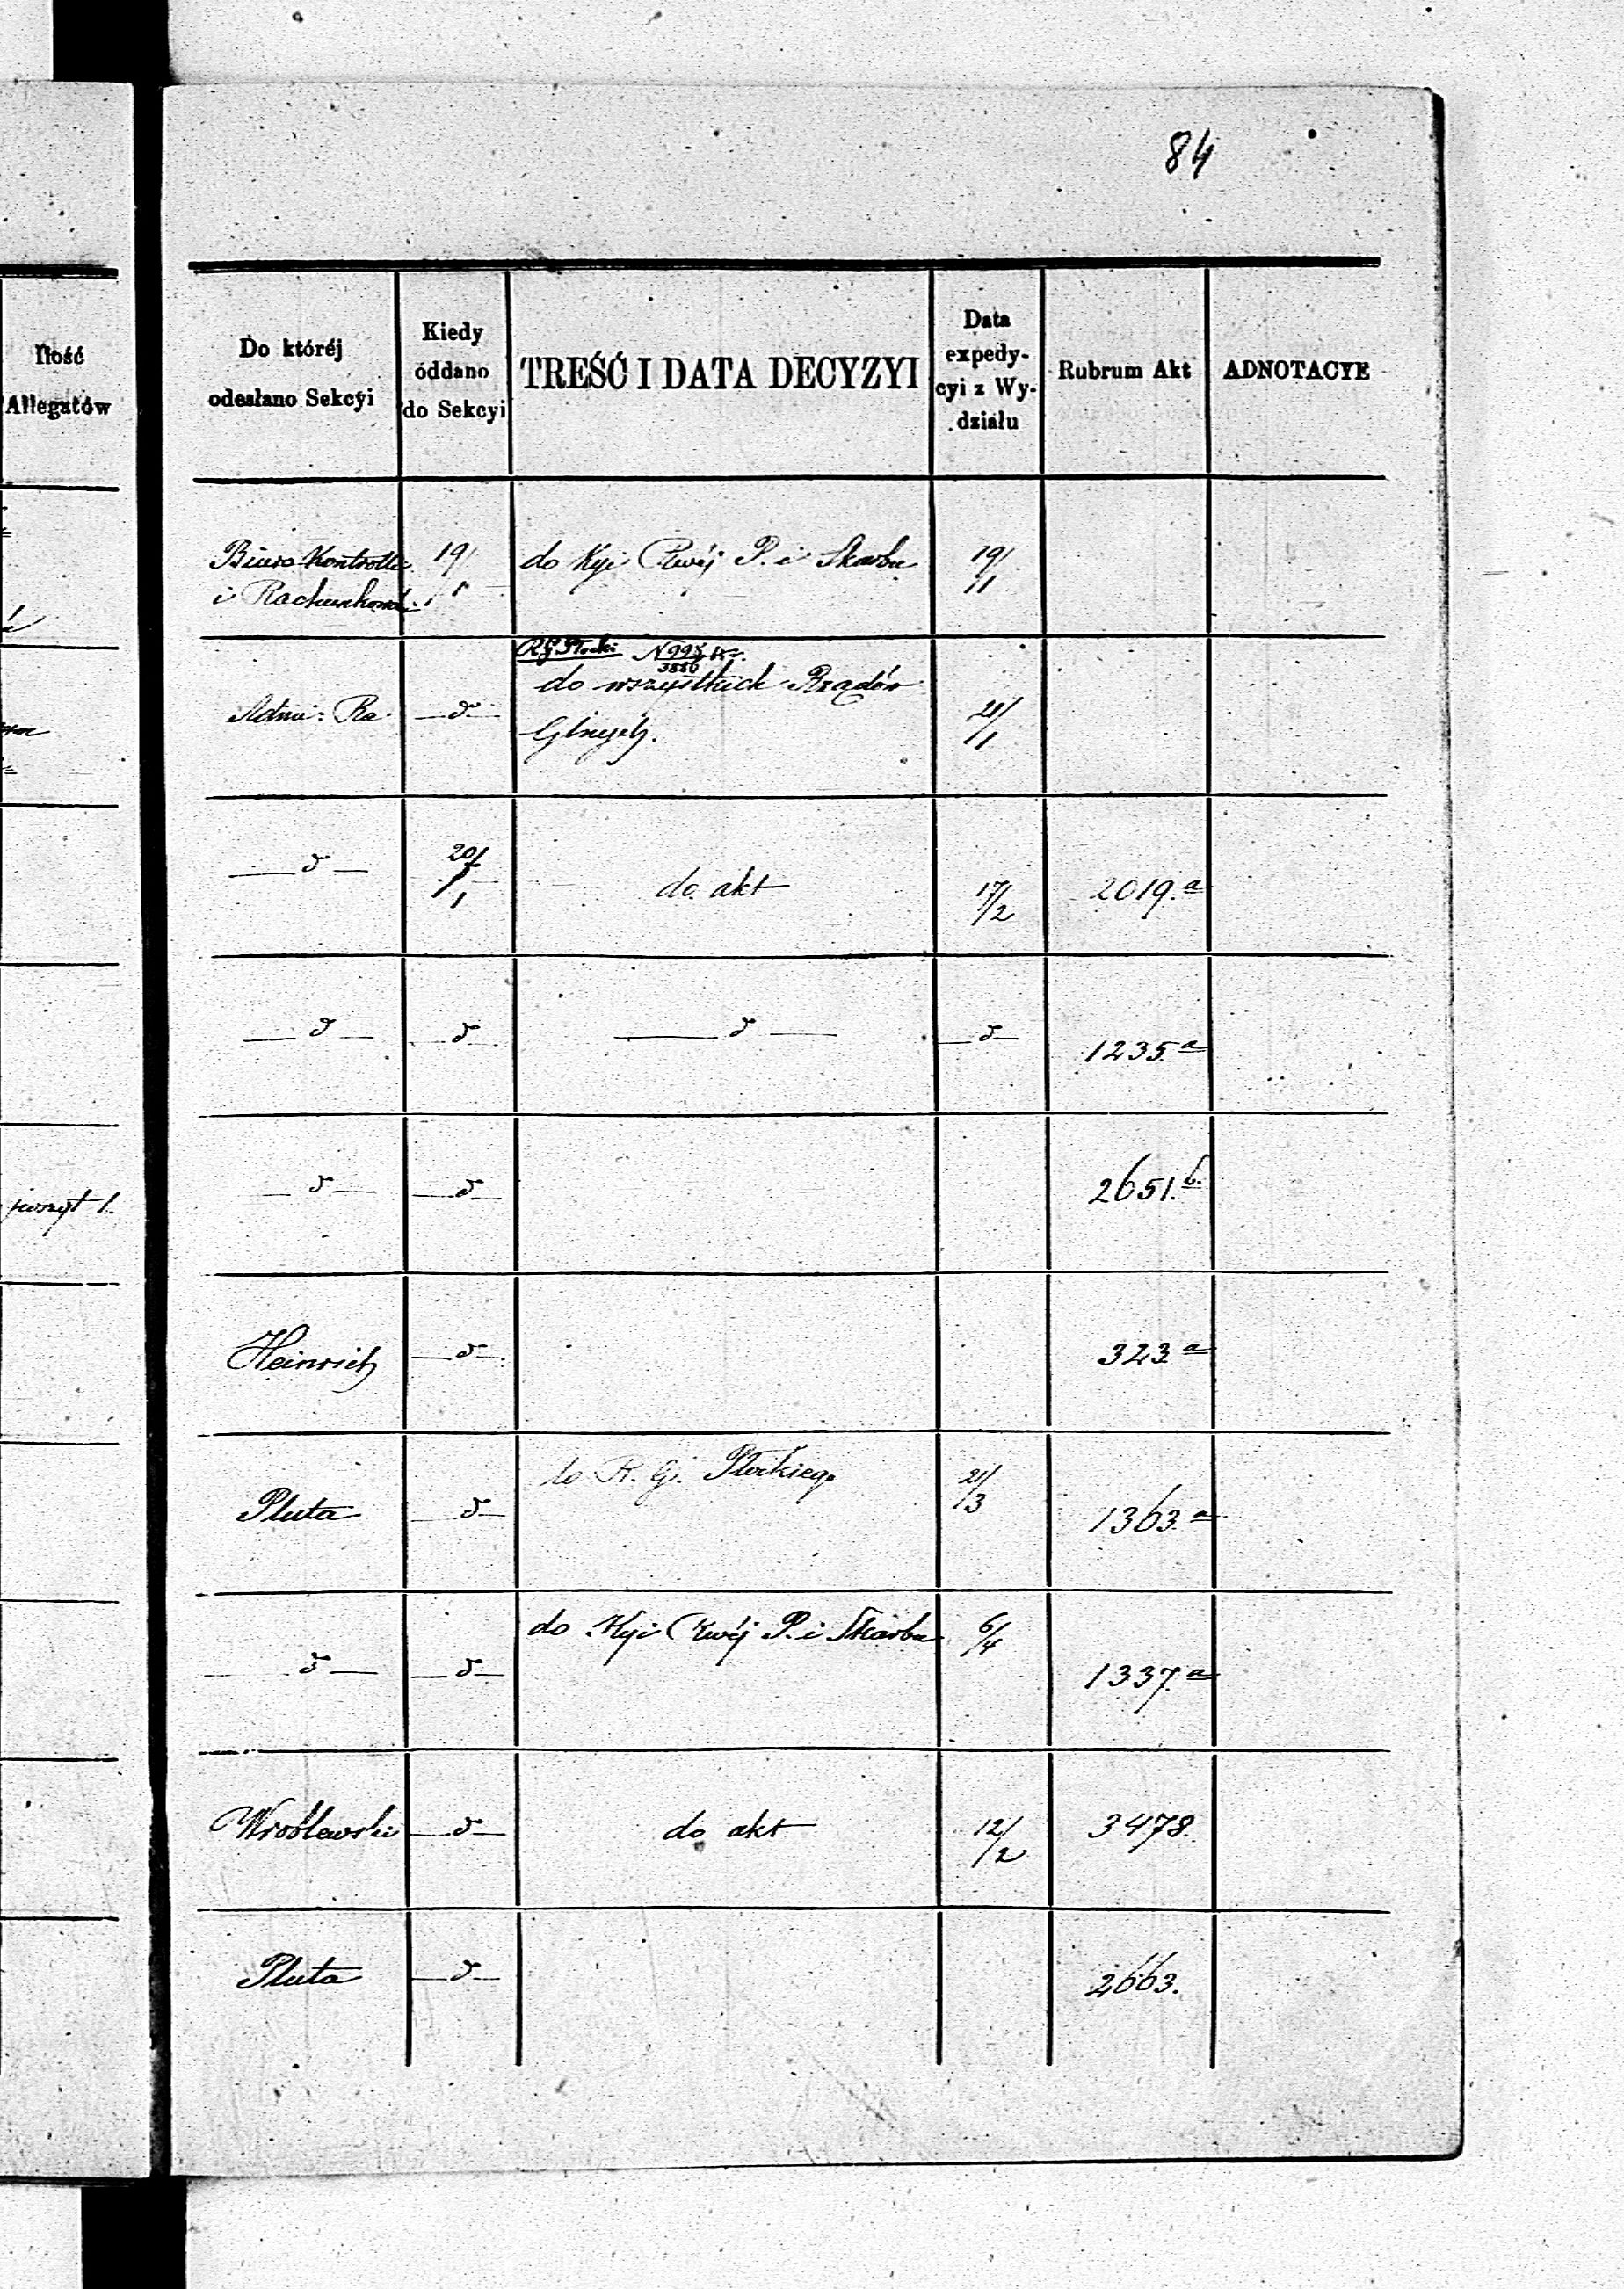 84
Ilość
Allegatów
Do któréj
odesłano Sekcyi
Kiedy
oddano
do Sekcyi
TREŚĆ I DATA DECYZYI
Data
expedy-
cyi z Wy-
działu
Rubrum Akt
ADNOTACYE
Biuro Kontrolli
i Rachunkowości
19/1
do Kyi Rwéj P. i Skarbu
19/1
RG Płocki N 995
3880
do wszystkich Rządów
Glnych.
Admi: Ra.
— d —
21/1
— d —
20/1
do akt
17/2
2019.a
— d —
— d —
— d —
— d —
1235.a
poszyt 1.
— d —
— d —
2651.b.
Heinrich
— d —
323 a
Pluta
— d —
do R. G. Płockiego
21/3
1363 a
— d —
— d —
do Kyi Rwéj P. i Skarbu
6/4
1337.a
Wróblewski
— d —
do akt
12/2
3478.
Pluta
— d —
2663.